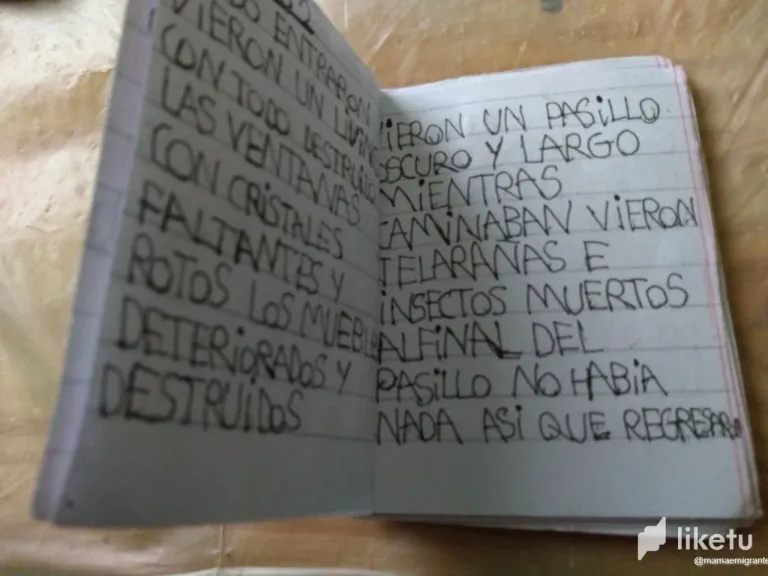 ENTRARON
VIERON UN LIVING
CON TODO DESTRUIDO
LAS VENTANAS
CON CRISTALES
FALTANTES Y
ROTOS LOS MUEBLE
DETERIORADOS Y
DESTRUIDOS
VIERON UN PASILLO
OSCURO Y LARGO
MIENTRAS
CAMINABAN VIERON
TELARAÑAS E
INSECTOS MUERTOS
ALFINAL DEL
PASILLO NO HABIA
NADA ASI QUE REGRESARON
liketu
@mamaemigrante